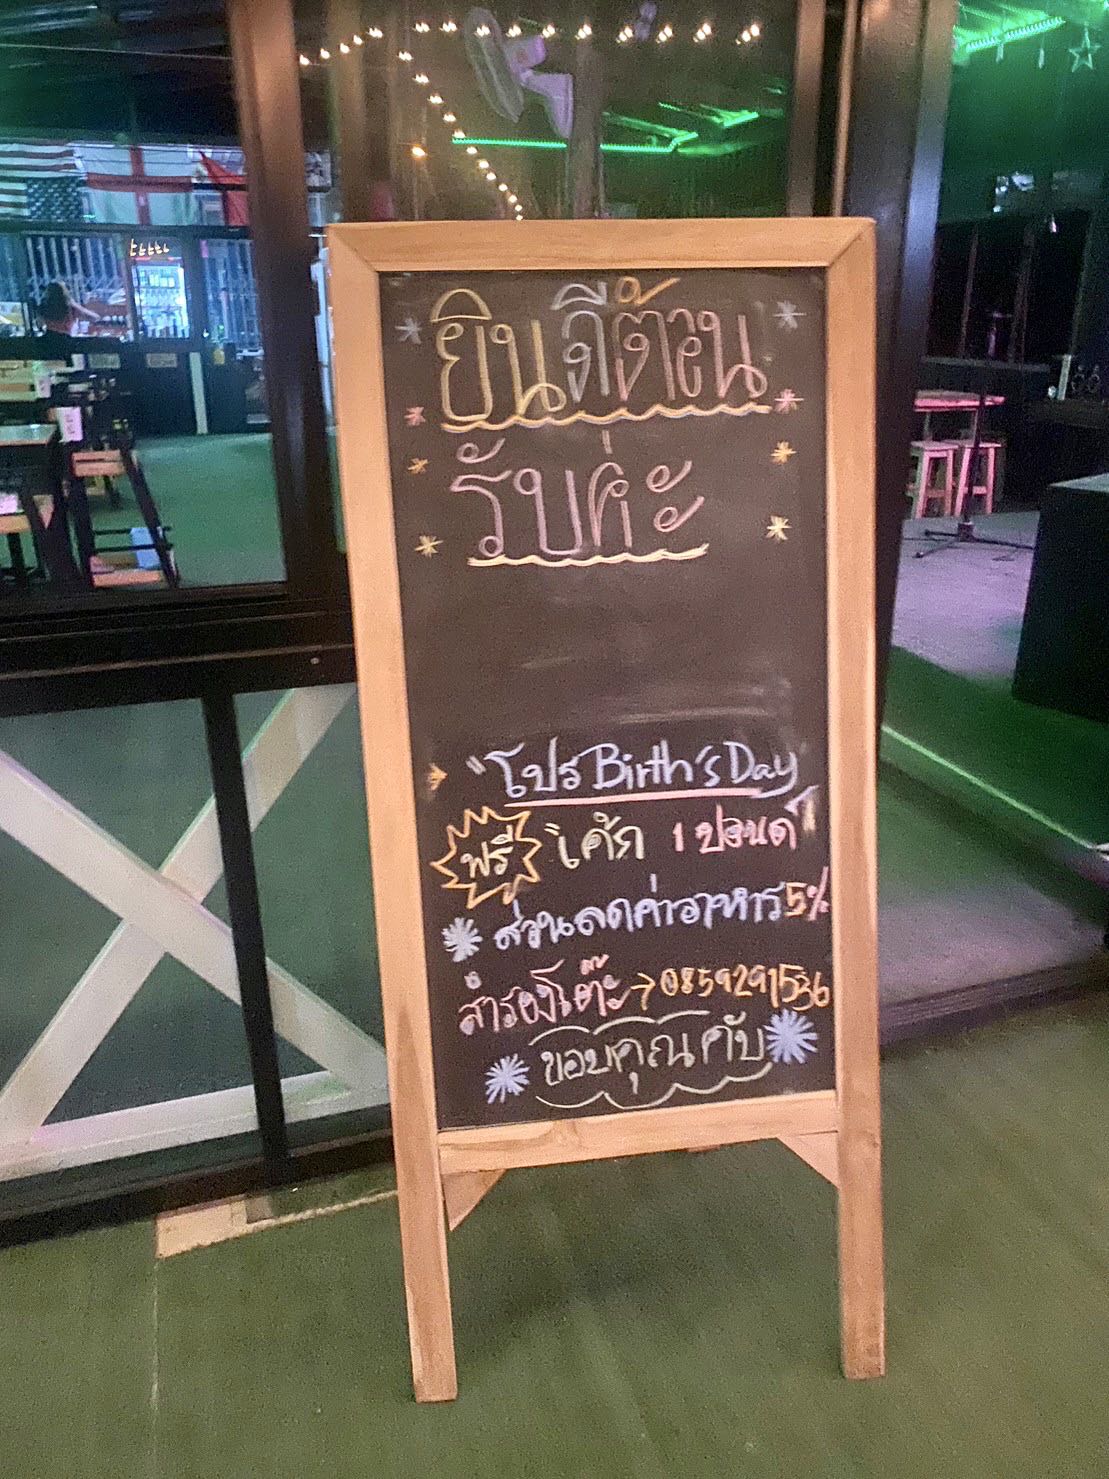 ยินดีต้อน
รับค่ะ
"โปร Birth's Day"
ฟรี เค้ก 1 ปอนด์
ส่วนลดค่าอาหาร 5%
สำรองโต๊ะ → 0859291536
ขอบคุณคับ